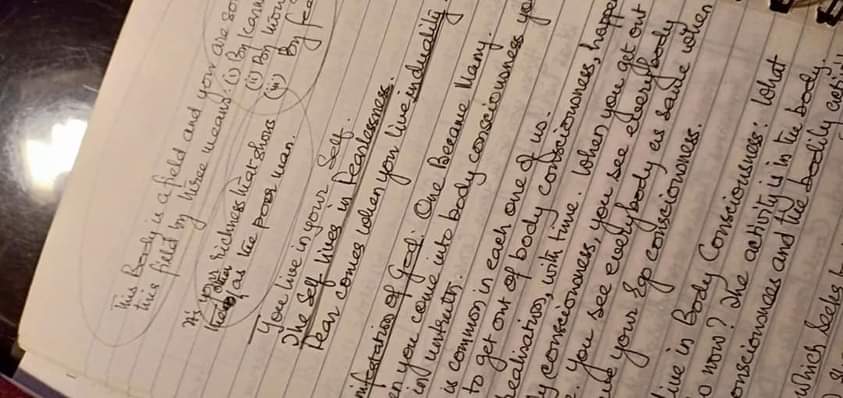 This Body is a field and you are so
this field by three means: (i) By Karm
(ii) By
It's your richness that shows
(iii) By fea
the other as the poor man.
You live in your Self.
The Self lives in Fearlessness.
Fear comes when you live in duality.
nifestation of God: One Became Many.
en you come into body consciousness yo
in untruth.
is common in each one of us.
to get out of body consciousness, happe
realisation, with time. When you get out
y consciousness, you see everybody
e. You see everybody as same when
your Ego consciousness.
live in Body Consciousness: What
o now? The activity is in the body.
onsciousness and the bodily activi
which seeks